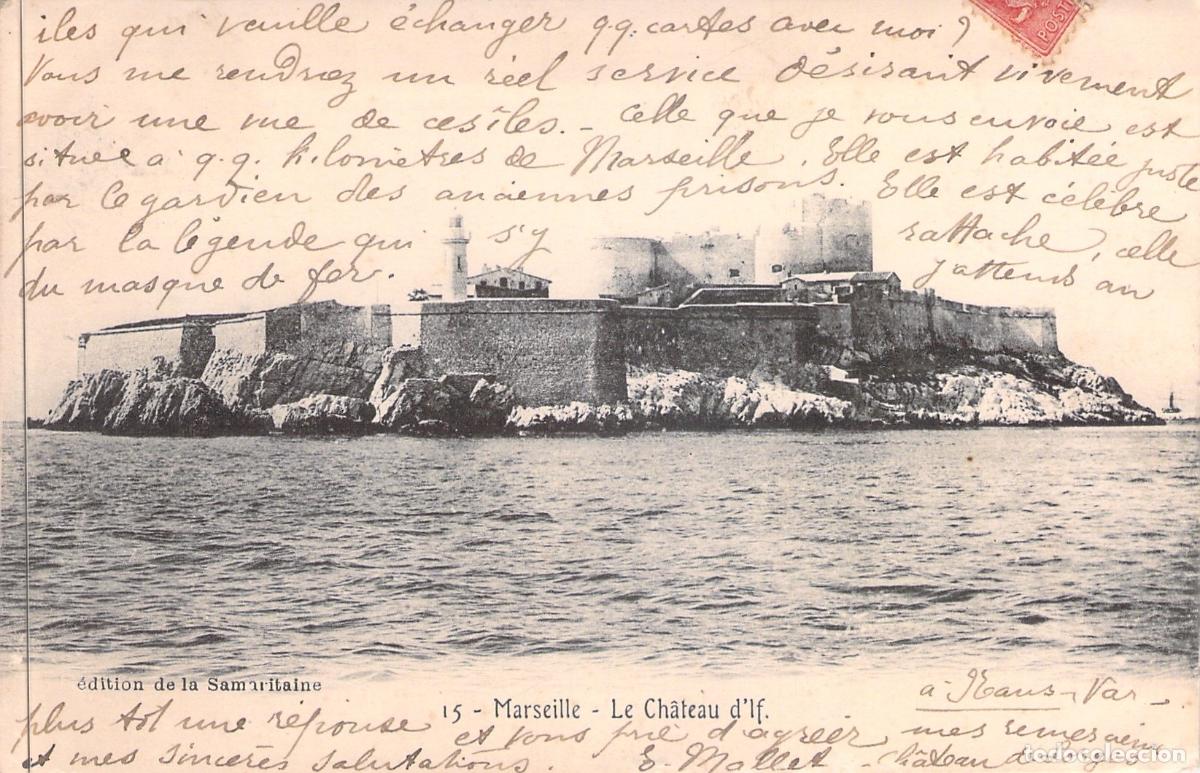 îles qui veuille échanger qq. cartes avec moi ?
Vous me rendrez un réel service désirant vivement
avoir une vue de ces îles. - Celle que je vous envoie est
située à q.q. kilomètres de Marseille. Elle est habitée juste
par le gardien des anciennes prisons. Elle est célèbre
par la légende qui s'y rattache, celle
du masque de fer. J'attends au
POST
édition de la Samaritaine
15 - Marseille - Le Château d'If.
à Rians - Var -
plus tôt une réponse et vous prie d'agréer, mes
et mes sincères salutations. E. Mallet - Château
todocoleccion